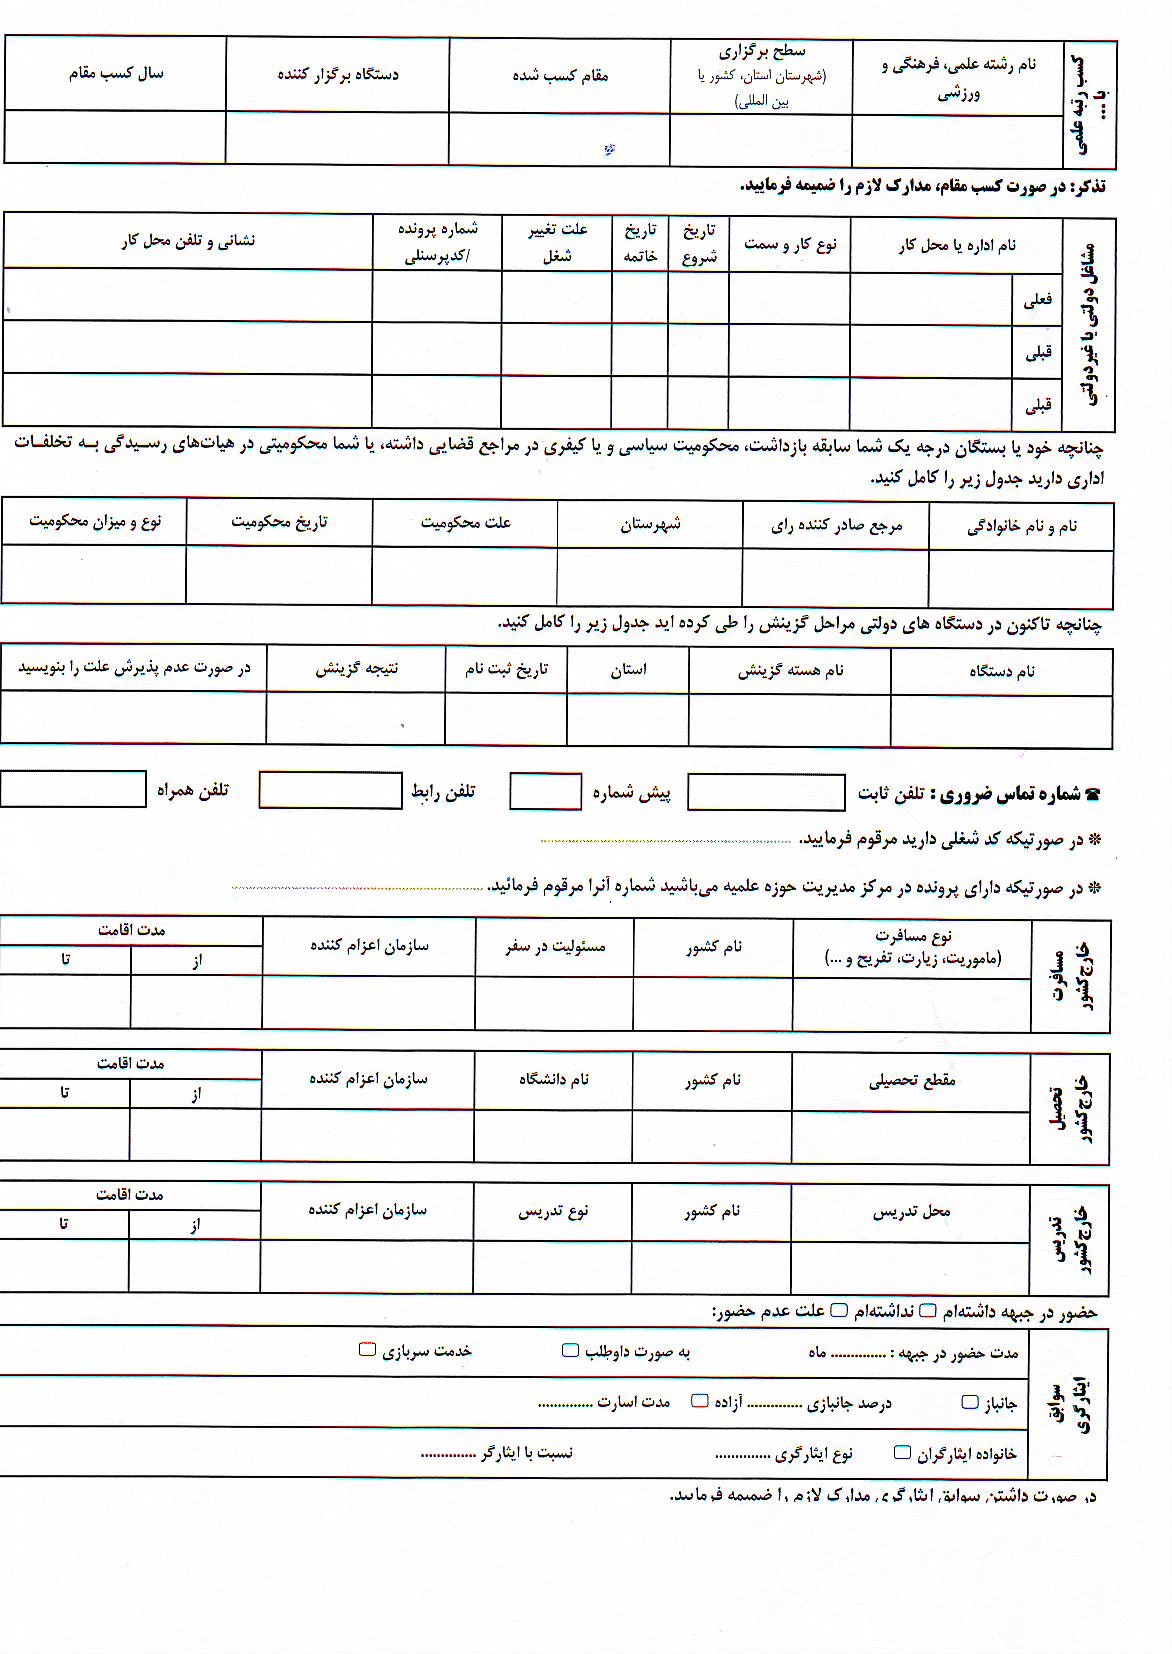 کسب رتبه علمی
یا ...
نام رشته علمی، فرهنگی و
ورزشی
سطح برگزاری
(شهرستان استان، کشور یا
بین المللی)
مقام کسب شده
دستگاه برگزار کننده
سال کسب مقام
تذکر: در صورت کسب مقام، مدارک لازم را ضمیمه فرمایید.
مشاغل دولتی یا غیردولتی
نام اداره یا محل کار
نوع کار و سمت
تاریخ
شروع
تاریخ
خاتمه
علت تغییر
شغل
شماره پرونده
/کدپرسنلی
نشانی و تلفن محل کار
فعلی
قبلی
قبلی
چنانچه خود یا بستگان درجه یک شما سابقه بازداشت، محکومیت سیاسی و یا کیفری در مراجع قضایی داشته، یا شما محکومیتی در هیات‌های رسیدگی به تخلفات
اداری دارید جدول زیر را کامل کنید.
نام و نام خانوادگی
مرجع صادر کننده رای
شهرستان
علت محکومیت
تاریخ محکومیت
نوع و میزان محکومیت
چنانچه تاکنون در دستگاه های دولتی مراحل گزینش را طی کرده اید جدول زیر را کامل کنید.
نام دستگاه
نام هسته گزینش
استان
تاریخ ثبت نام
نتیجه گزینش
در صورت عدم پذیرش علت را بنویسید
☎ شماره تماس ضروری : تلفن ثابت
پیش شماره
تلفن رابط
تلفن همراه
❊ در صورتیکه کد شغلی دارید مرقوم فرمایید. ..............................
❊ در صورتیکه دارای پرونده در مرکز مدیریت حوزه علمیه می‌باشید شماره آنرا مرقوم فرمائید. ..............................
مسافرت
خارج‌کشور
نوع مسافرت
(ماموریت، زیارت، تفریح و ...)
نام کشور
مسئولیت در سفر
سازمان اعزام کننده
مدت اقامت
از
تا
تحصیل
خارج‌کشور
مقطع تحصیلی
نام کشور
نام دانشگاه
سازمان اعزام کننده
مدت اقامت
از
تا
تدریس
خارج‌کشور
محل تدریس
نام کشور
نوع تدریس
سازمان اعزام کننده
مدت اقامت
از
تا
حضور در جبهه داشته‌ام ▢ نداشته‌ام ▢ علت عدم حضور:
سوابق
ایثارگری
مدت حضور در جبهه : .............. ماه به صورت داوطلب ▢ خدمت سربازی ▢
جانباز ▢ درصد جانبازی .............. آزاده ▢ مدت اسارت ..............
خانواده ایثارگران ▢ نوع ایثارگری .............. نسبت با ایثارگر ..............
در صورت داشتن سوابق ایثارگری مدارک لازم را ضمیمه فرمایید.